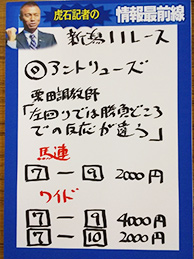 虎石記者の
情報最前線
新潟11レース
◎アントリューズ
栗田調教師
「左回りでは勝負どころ
での反応が違う」
馬連
7-9 2000円
ワイド
7-9 4000円
7-10 2000円